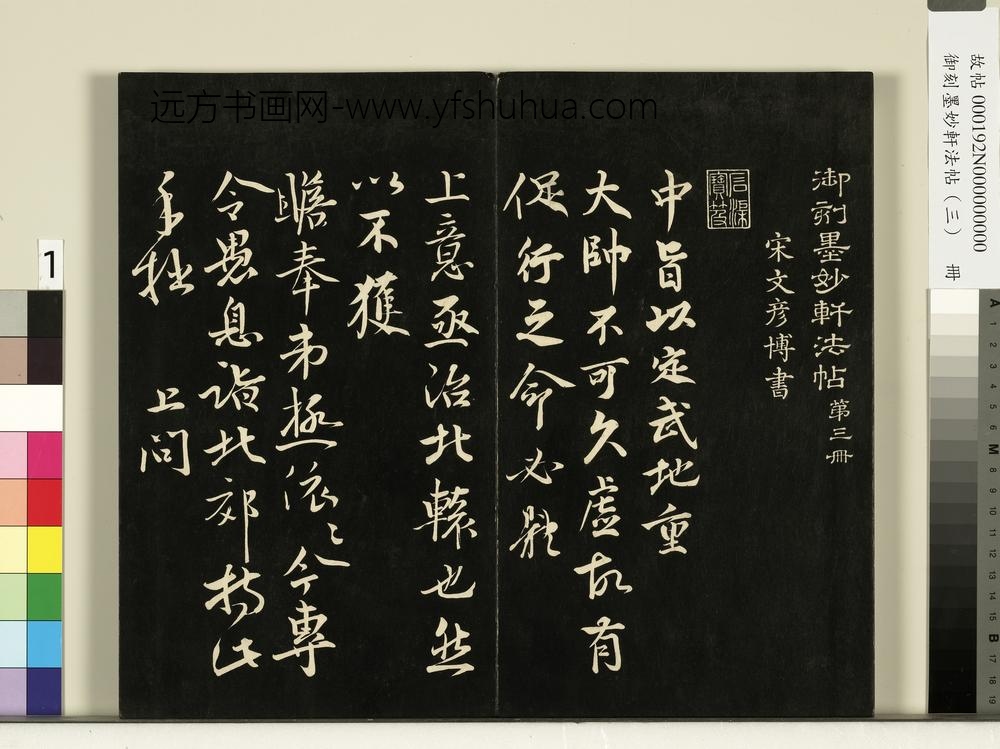 远方书画网-www.yfshuhua.com
故帖 000192N000000000
御刻墨妙軒法帖（三） 冊
1
御刻墨妙軒法帖第三冊
宋文彦博書
中旨以定武地重
大帥不可久虛故有
促行之命必體
上意亟治北轅也然
以不獲
瞻奉弟極依依今專
令愚息詣北郊持此
手狀 上問